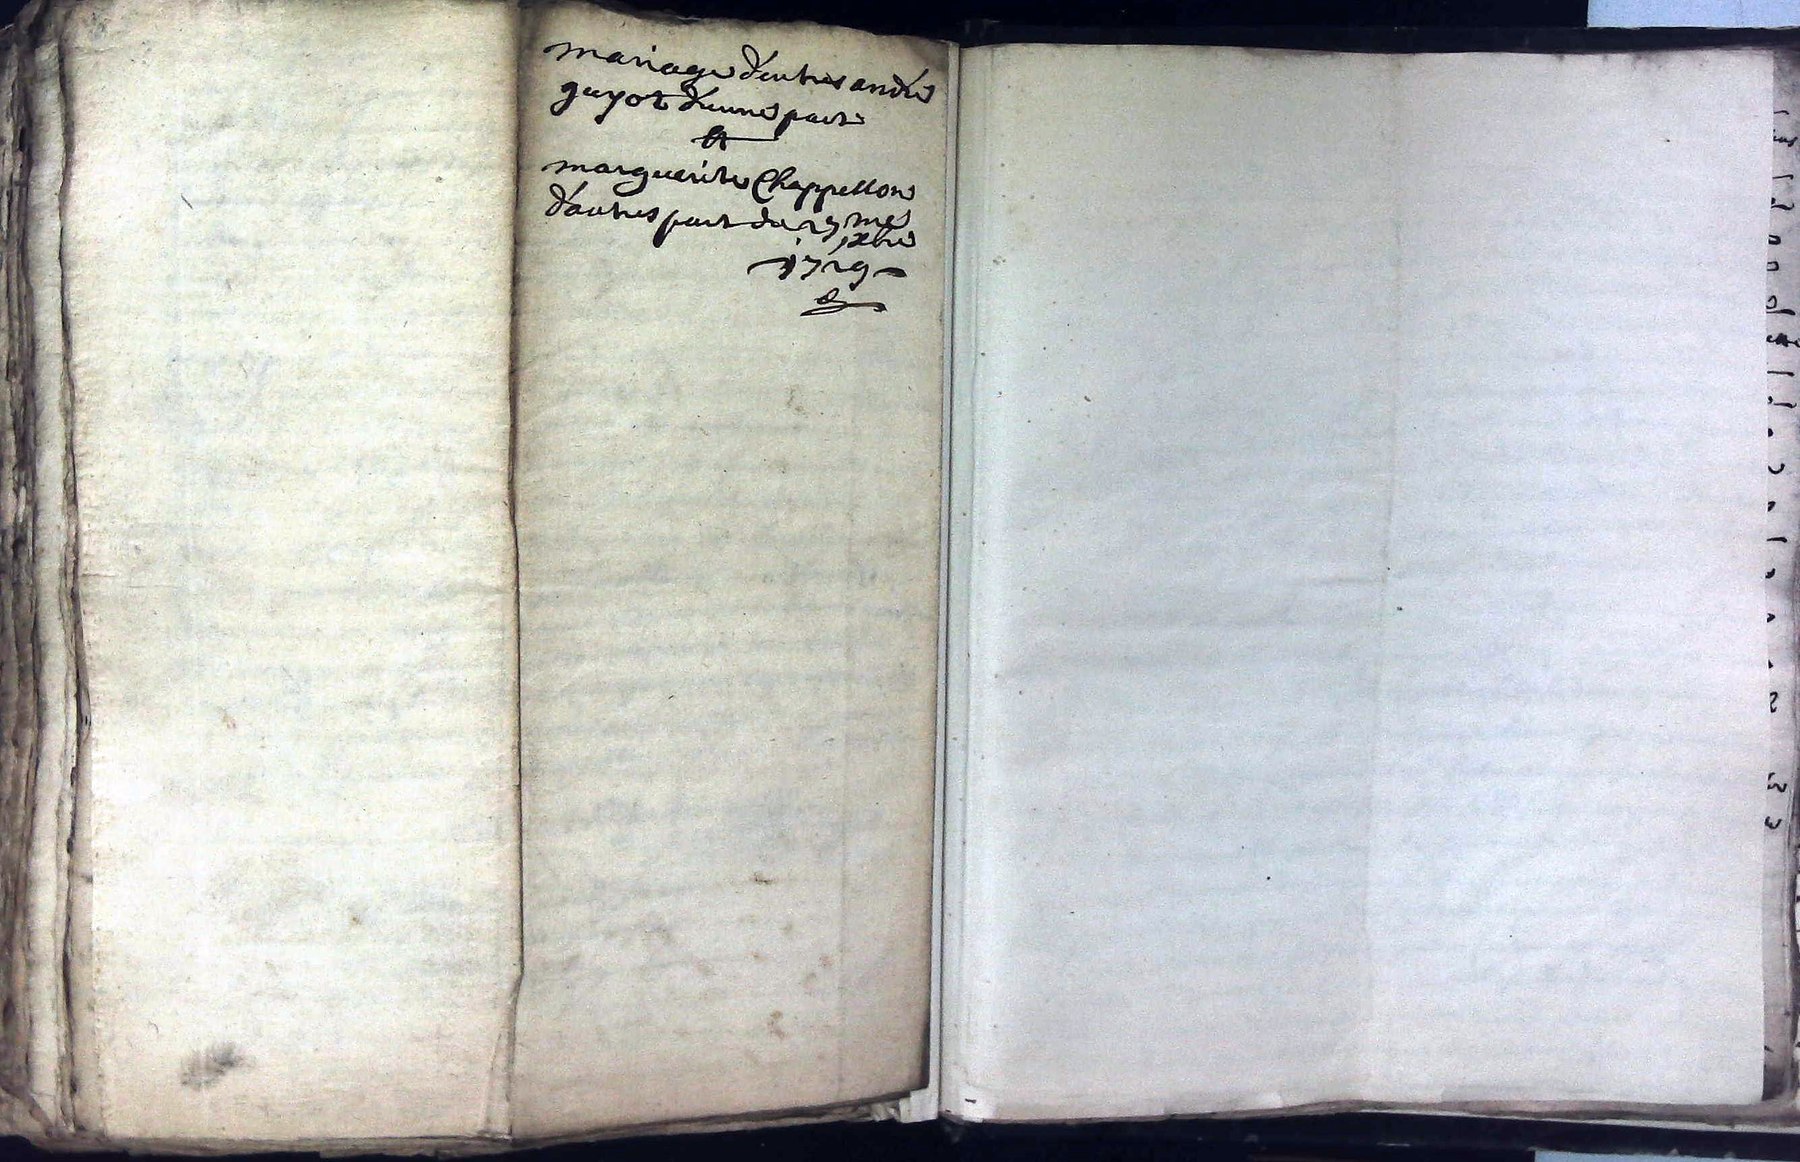 mariage d'entre andre
guyot d'une part
Et
marguerite Chappellon
d'autre part du 29 me
xbre
1729